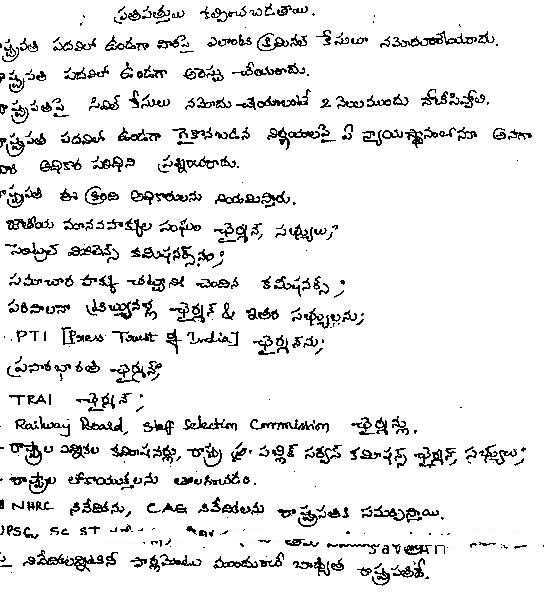 ప్రతిపత్తులు కల్పించబడతాయి.
రాష్ట్రపతి పదవిలో ఉండగా వారిపై ఎలాంటి క్రిమినల్ కేసులూ నమోదుకాబోయరాదు.
రాష్ట్రపతి పదవిలో ఉండగా అరెస్టు చేయరాదు.
రాష్ట్రపతిపై సివిల్ కేసులు నమోదు చేయాలంటే 2 నెలలముందు నోటీసివ్వాలి.
రాష్ట్రపతి పదవిలో ఉండగా గైకొనబడిన నిర్ణయాలపై ఏ న్యాయస్థానంలోనూ అనగా
వారి అధికార పరిధిని ప్రశ్నించరాదు.
రాష్ట్రపతి ఈ క్రింది అధికారులను నియమిస్తారు.
జాతీయ మానవహక్కుల సంఘం ఛైర్మన్, సభ్యులు;
సెంట్రల్ విజిలెన్స్ కమిషనర్స్‌ను;
సమాచార హక్కు చట్టానికి చెందిన కమీషనర్స్;
పరిపాలనా ట్రిబ్యునళ్ల ఛైర్మన్ & ఇతర సభ్యులను;
PTI [Press Trust of India] ఛైర్మన్‌ను;
ప్రసారభారతి ఛైర్మన్;
TRAI ఛైర్మన్;
Railway Board, Staff Selection Commission ఛైర్మన్లు.
- రాష్ట్రాల ఎన్నికల కమీషనర్లు, రాష్ట్ర పబ్లిక్ సర్వీస్ కమిషన్స్ ఛైర్మన్, సభ్యులు;
- రాష్ట్రాల లోకాయుక్తలను తొలగించడం.
NHRC నివేదికను, CAG నివేదికలను రాష్ట్రపతికి సమర్పిస్తాయి.
UPSC, SC ST
పై నివేదికలన్నింటినీ పార్లమెంటు ముందుంచే బాధ్యత రాష్ట్రపతిదే.